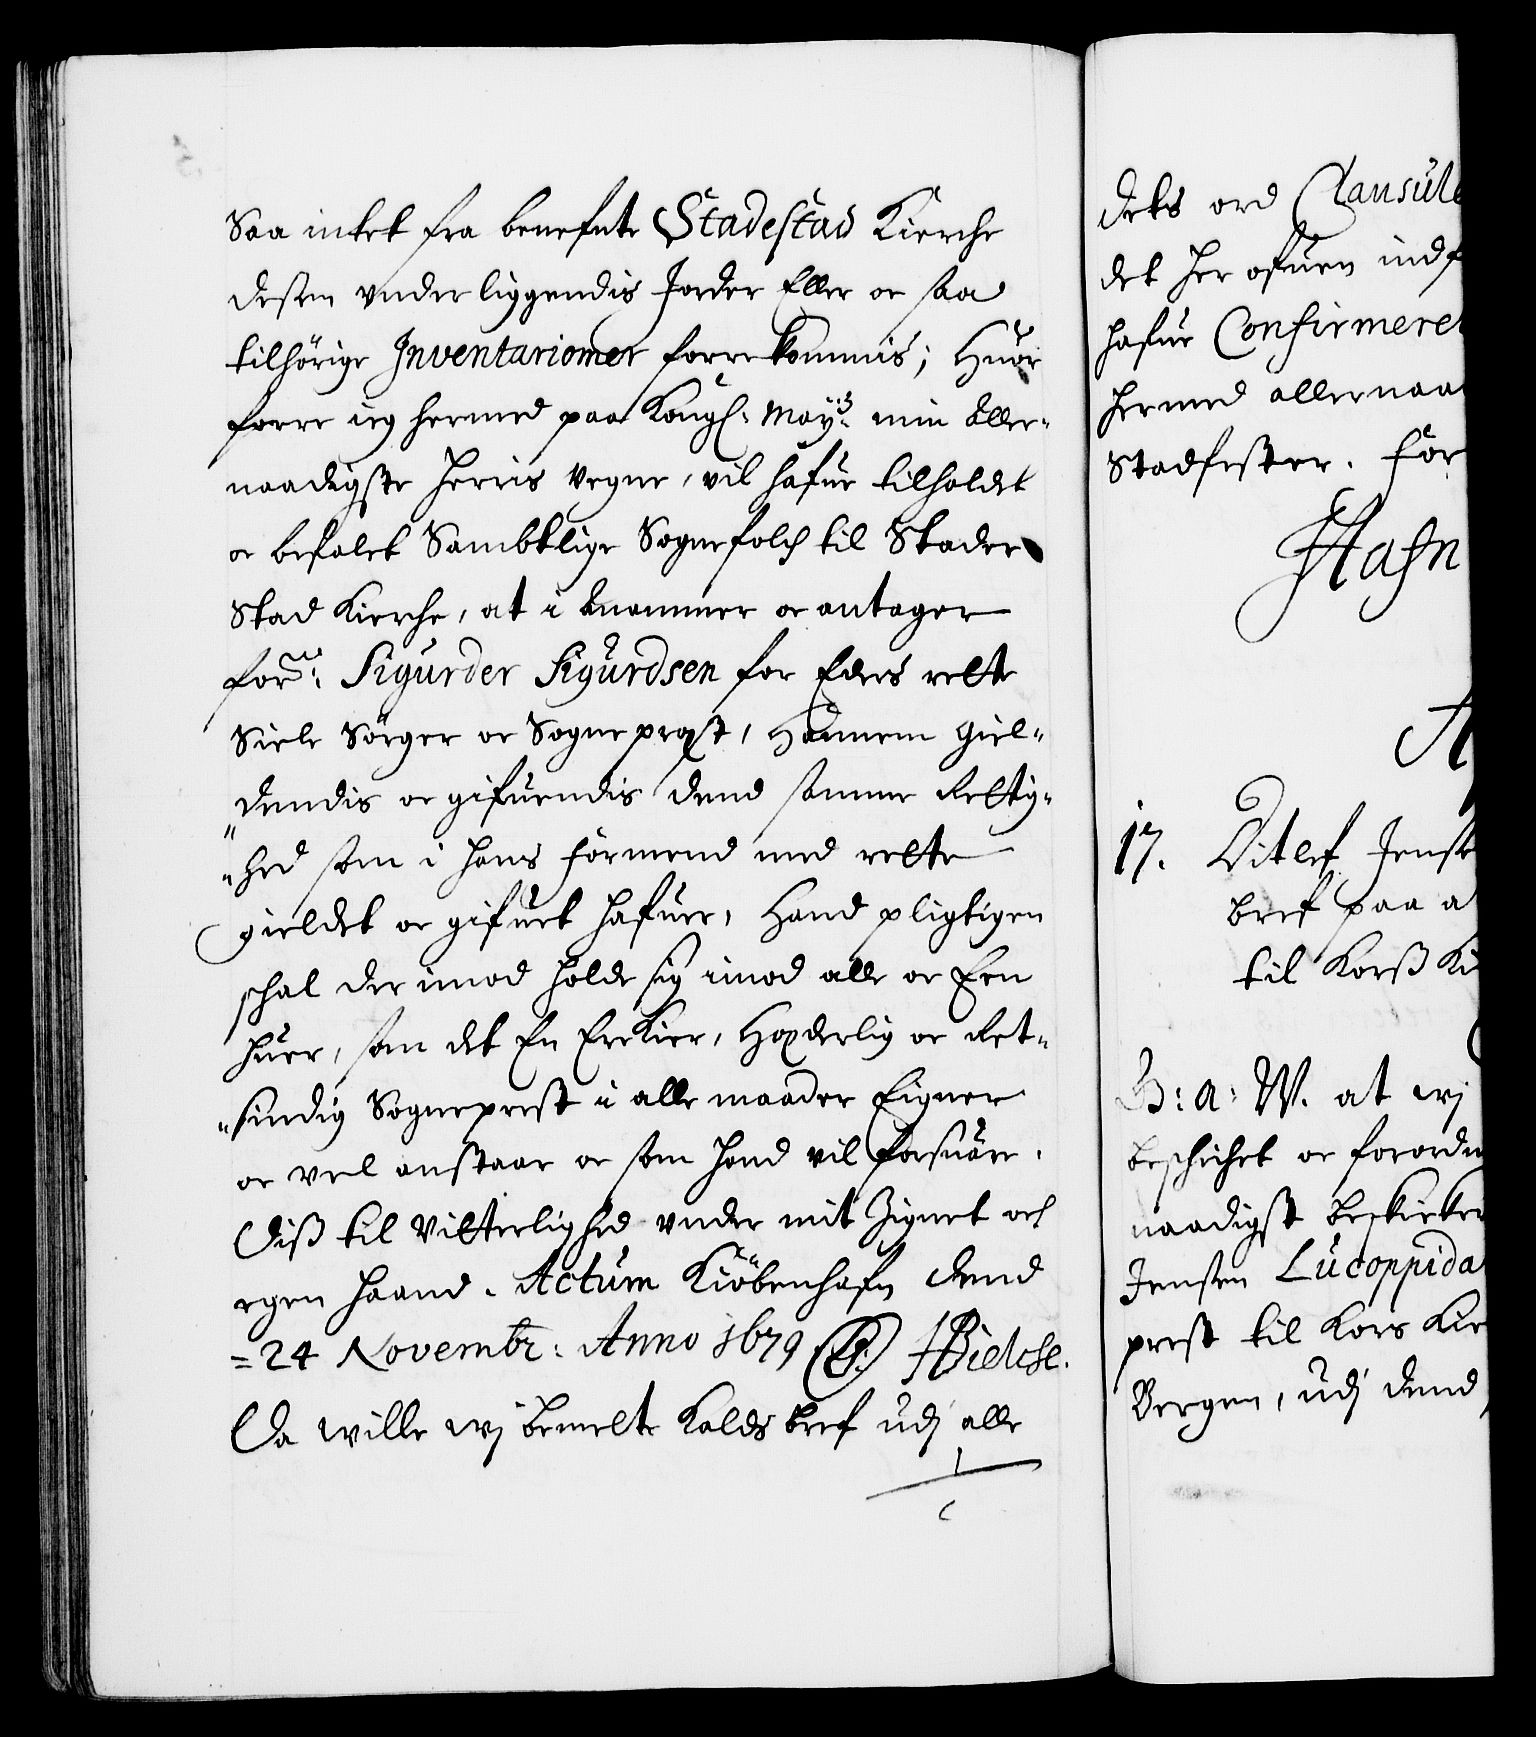 Saa intet fra benefnte Stadestad Kierche
desen underliggendis Jorder Eller oc saa
tilhörige Inventariomer forrekommis; Huor
forre ieg hermed paa Kongl: Mayts: min Aller-
naadigste Herris Vegne, vil hafue tilholdet
oc befalet Sambtlige Sognefolch til Stade
Stad Kierche, at i Anammer oc antager
forne: Sigurder Sigurdsen for Eders rette
Siele Sörger oc Sogneprest, Hannem giel-
dendis oc gifuendis dend samme Rettig-
hed som i hans formend med rette
gieldet oc gifuet hafuer, Hand pligtigen
schal der imod holde sig imod alle oc Een
huer, som det En Erekier, Hæderlig oc Ret-
sindig Sogneprest i alle maader Eigner
oc vel anstaar oc som hand vil forsuare.
Diss til Vitterlighed under mit Zignet och
egen haand. Actum Kiöbenhafn dend
=24 Novembr: Anno 1679 HBielche.
Da wille wj bemelte Kalds bref udj alle
dets ord Clausule
det her ofuen indf
hafue Confirmere
hermed allernaa
Stadfester. For
Hafn
A
17. Ditlef Jens
bref paa a
til Korss Ki
G: a: W. at wj
beschichet oc forord
naadigst beskicke
Jensen Lucoppida
prest til Kors Kie
Bergen, udj dend